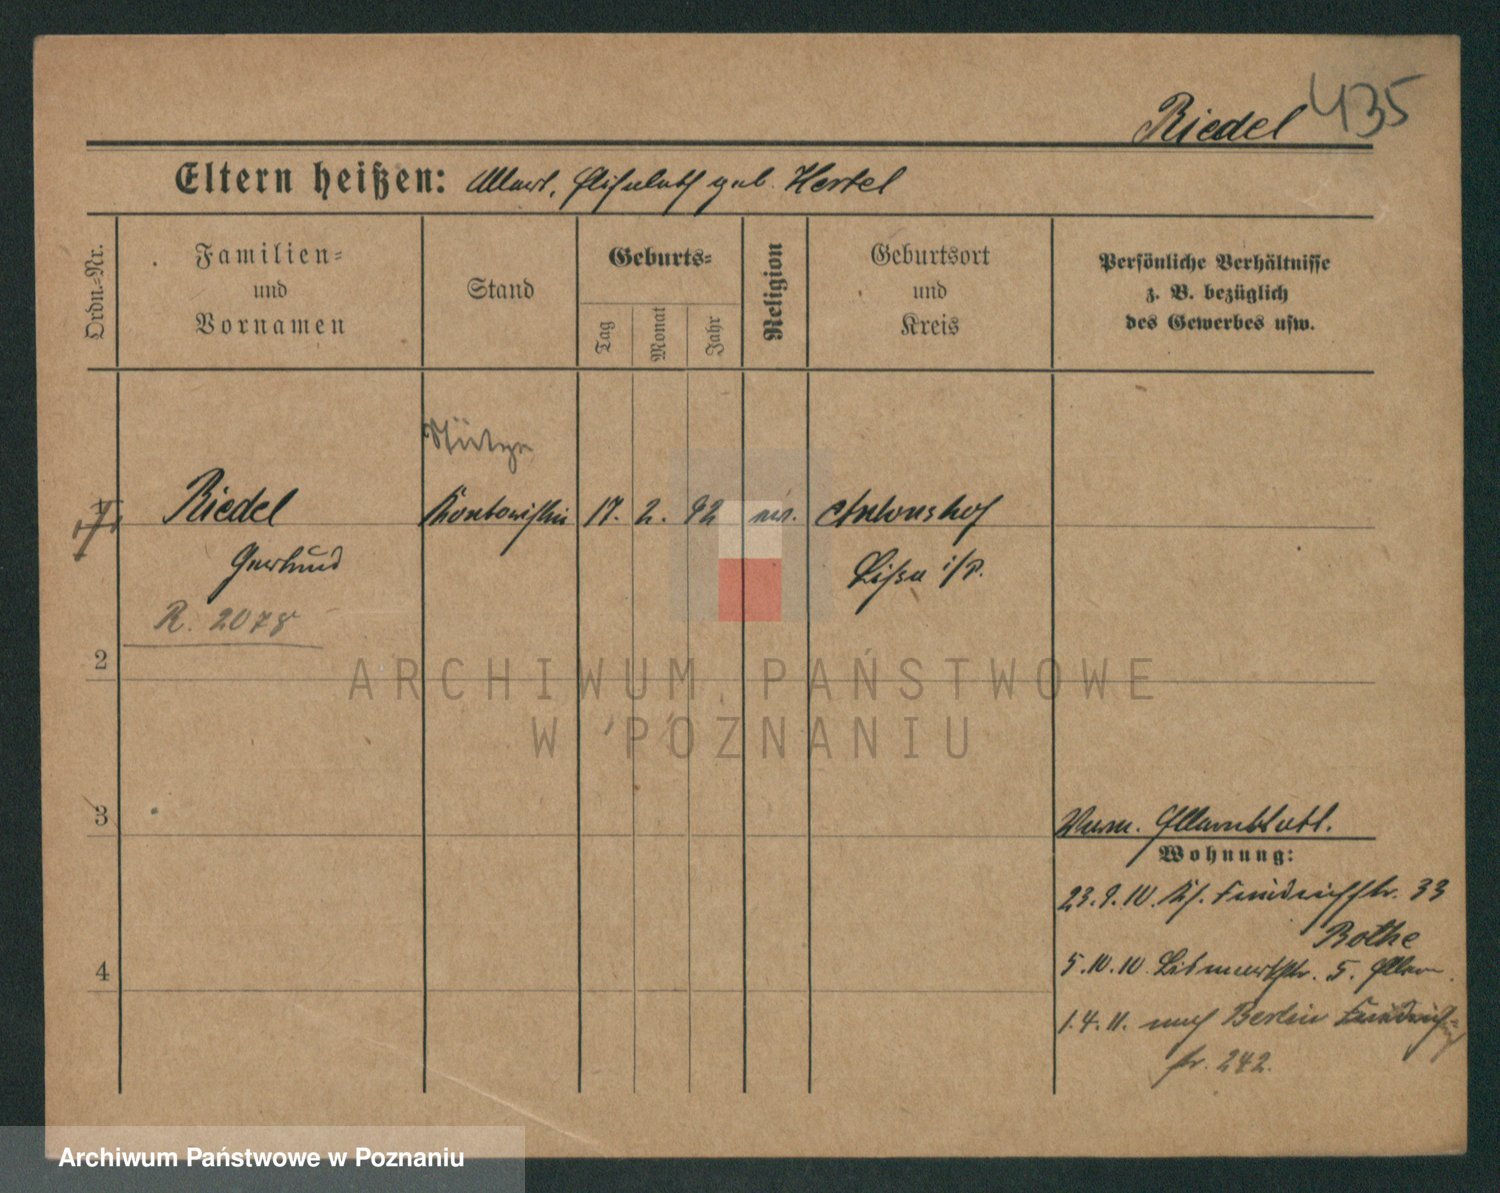 Riedel 435
Eltern heißen: Elisabeth geb. Hertel
Ordn.-Nr.
Familien=
und
Vornamen
Stand
Geburts=
Tag
Monat
Jahr
Religion
Geburtsort
und
Kreis
Persönliche Verhältnisse
z. B. bezüglich
des Gewerbes usw.
Stütze
1 Riedel Kontoristin 17. 2. 92 ev. Antonshof
Gertrud Lissa i/P.
R. 2078
2
ARCHIWUM PAŃSTWOWE
W POZNANIU
3
Wohnung:
23.9.10. Friedrichstr. 33
Rothe
4
5.10.10 Bismarckstr. 5.
1.4.11. nach Berlin Friedrich=
str. 242.
Archiwum Państwowe w Poznaniu